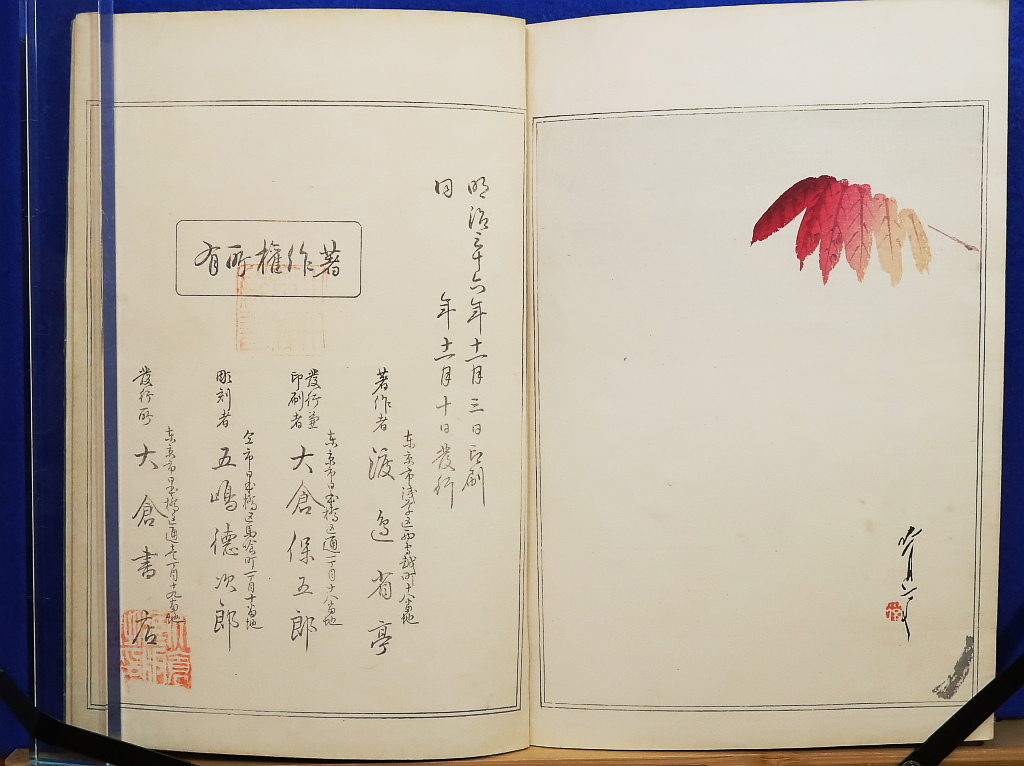 省亭
明治三十六年十一月三日印刷
同 年十一月十日發行
東京市浅草区西鳥越町十八番地
著作者 渡邉省亭
東京市日本橋区通一丁目十八番地
發行兼印刷者 大倉保五郎
仝市日本橋区馬喰町一丁目十番地
彫刻者 五嶋德次郎
著作權所有
東京市日本橋区通壱丁目十九番地
發行所 大倉書店